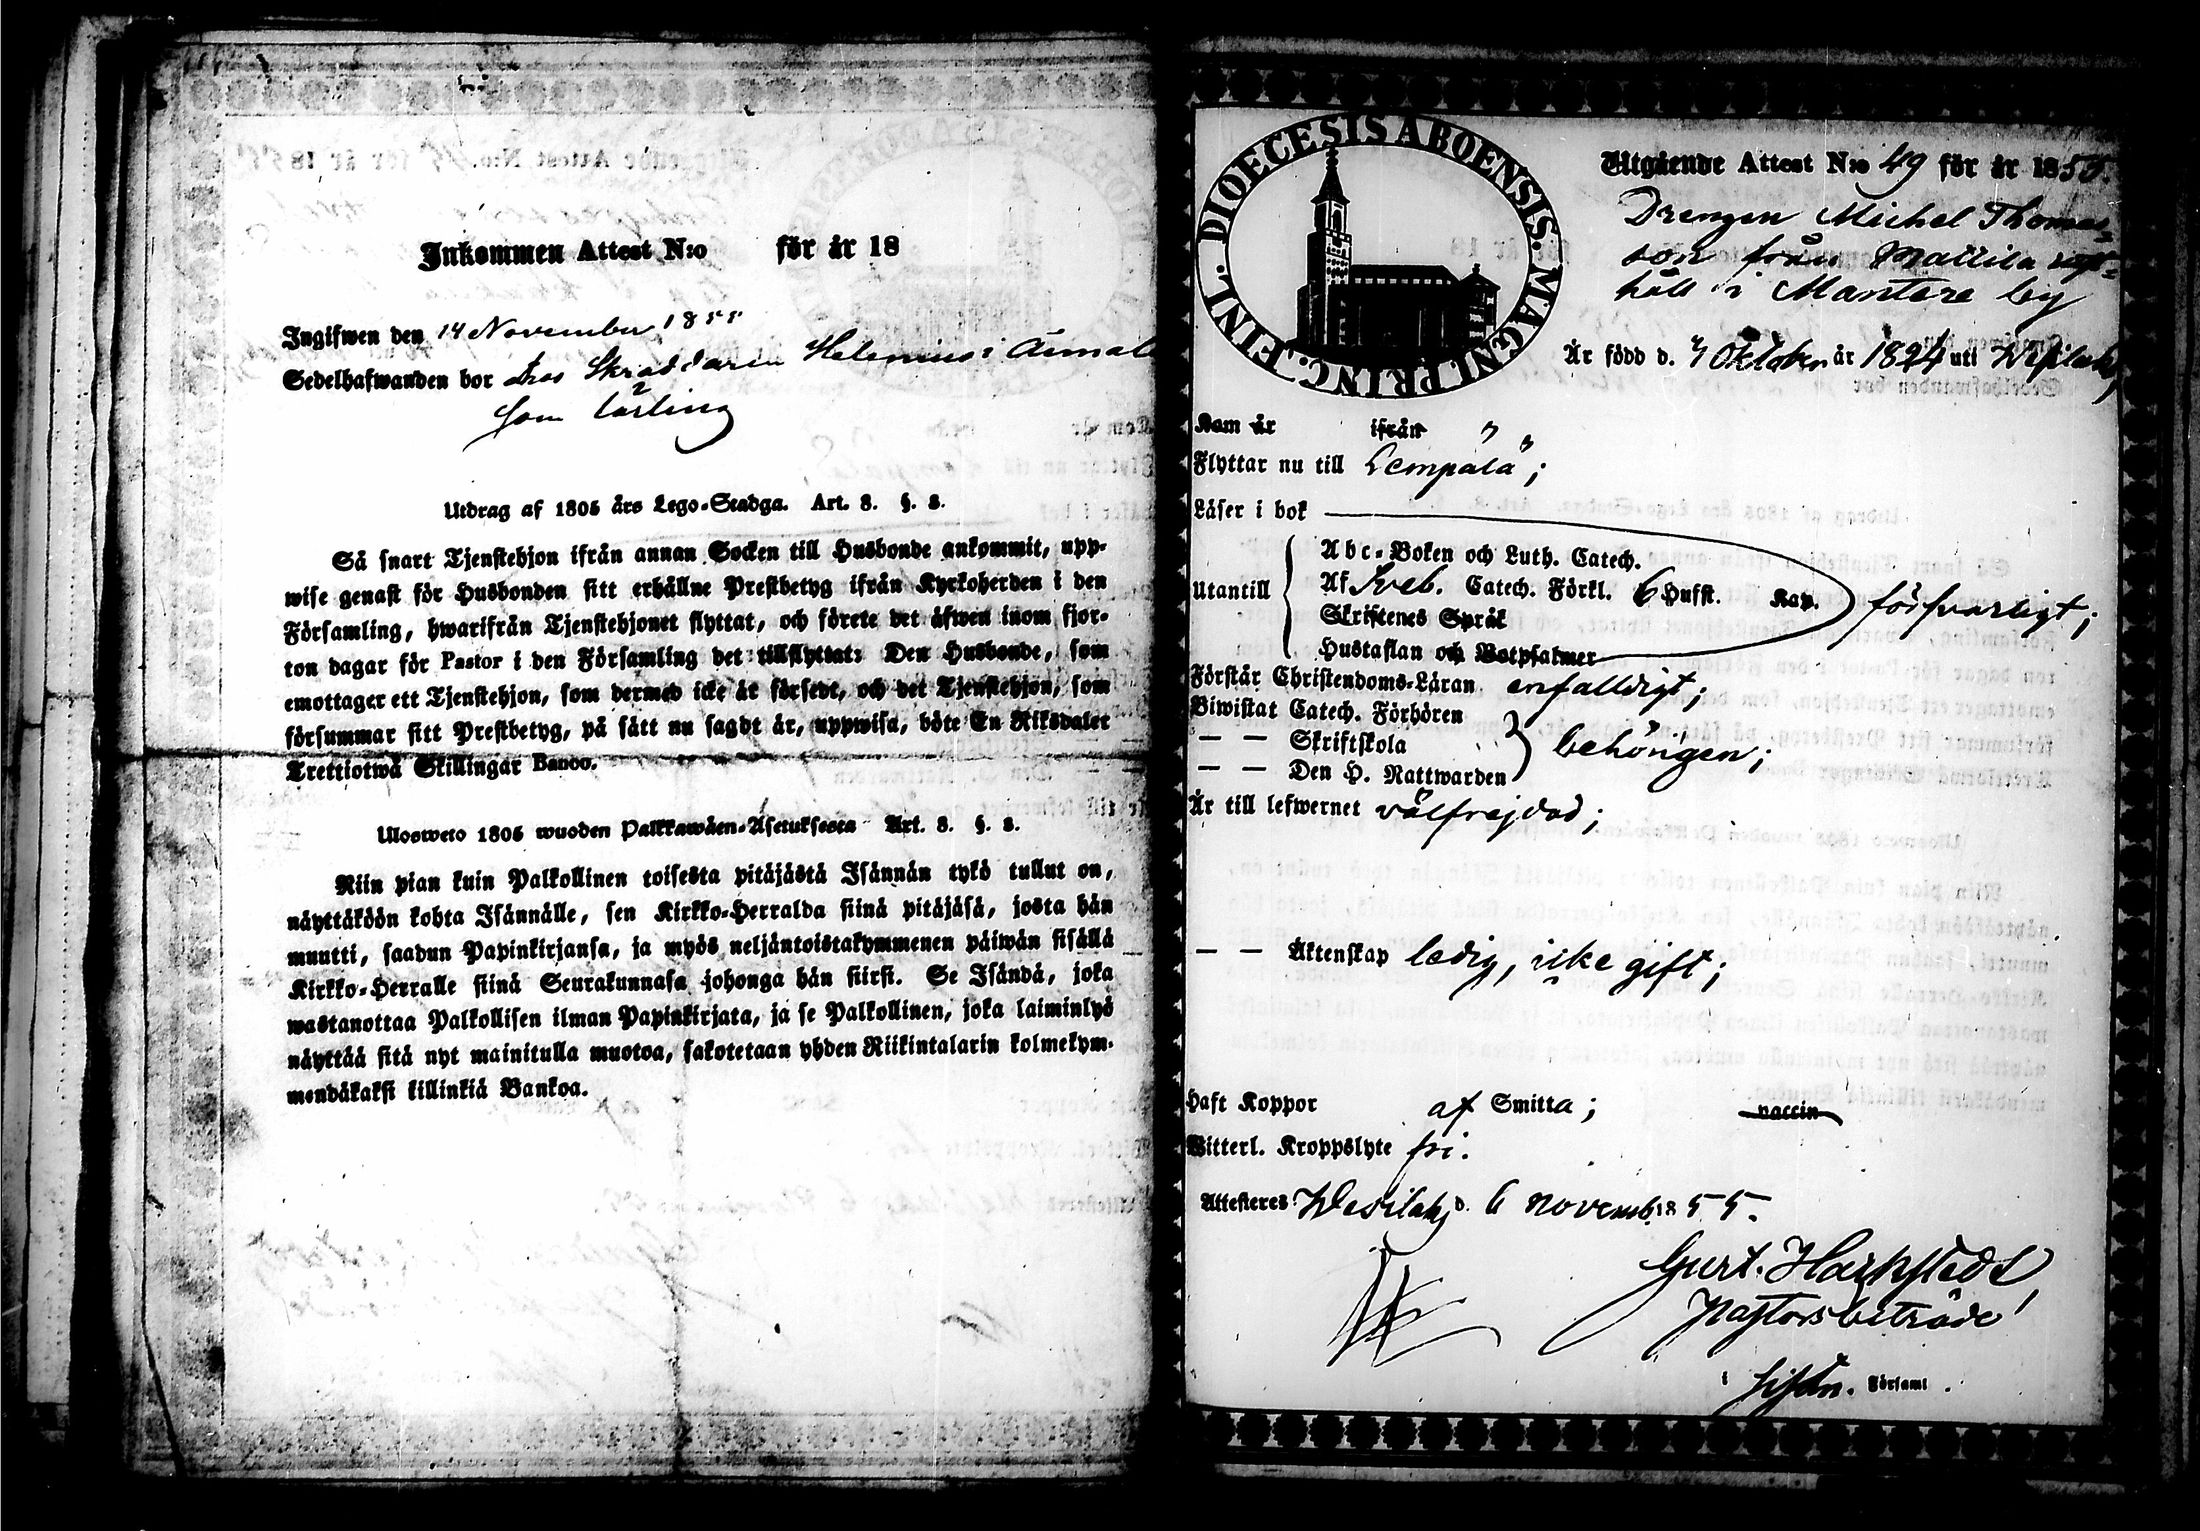 Inkommen Attest N:o för år 18
Ingifwen den 14 November 1855
Sedelhafwanden bor hos Skräddaren Helenius i
som lärling
Utdrag af 1805 års Lego-Stadga. Art. 8. §. 8.
Så snart Tjenstehjon ifrån annan Socken till Husbonde ankommit, upp-
wise genast för Husbonden sitt erhållne Prestbetyg ifrån Kyrkoherden i den
Församling, hwarifrån Tjenstehjonet flyttat, och förete det äfwen inom fjor-
ton dagar för Pastor i den Församling det tillflyttat: Den Husbonde, som
emottager ett Tjenstehjon, som dermed icke är försedt, och det Tjenstehjon, som
försummar sitt Prestbetyg, på sätt nu sagdt är, uppwisa, böte En Riksdaler
Trettiotwå Skillingar Banco.
Ulosweto 1805 wuoden Palkkawäen-Asetuksesta Art. 8. §. 8.
Niin pian kuin Palkollinen toisesta pitäjästä Isännän tykö tullut on,
näyttäköön kohta Isännälle, sen Kirkko-Herralda siinä pitäjäsä, josta hän
muutti, saadun Papinkirjansa, ja myös neljäntoistakymmenen päiwän sisällä
Kirkko-Herralle siinä Seurakunnasa johonga hän siirsi. Se Isändä, joka
wastanottaa Palkollisen ilman Papinkirjata, ja se Palkollinen, joka laiminlyö
näyttää sitä nyt mainitulla muotoa, sakotetaan yhden Riikintalarin kolmekym-
mendäkaksi killinkiä Bankoa.
DIOECESIS ABOENSIS. MAGNI PRINC. FINL.
Utgående Attest N:o 49 för år 1855.
Drengen Michel Thomas-
son från Mattila
håll i Mantere by
Är född d. 7 Oktober år 1824 uti Wesilaks,
Kom är ifrån "
Flyttar nu till Lempälä;
Läser i bok
Utantill
Abc-Boken och Luth. Catech.
Af Sveb. Catech. Förkl. 6 Hufst. Kap.
Skriftenes Språk
Hustaflan och Botpsalmer
försvarligt;
Förstår Christendoms-Läran enfalldigt;
Biwistat Catech. Förhören
— — Skriftskola
— — Den H. Nattwarden
behörigen;
Är till lefwernet välfrejdad;
— — Äktenskap ledig, icke gift;
Haft Koppor af Smitta; vaccin
Witterl. Kroppslyte fri.
Attesteres Wesilaks d. 6 novemb. 1855.
Gust. Harkstedt
Pastorsbiträde
i Församl.